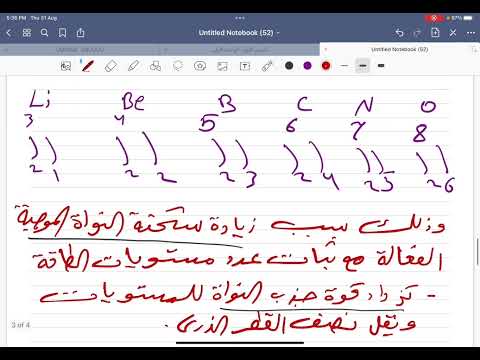 5:36 PM Thu 31 Aug
67%
Untitled Notebook (52)
Untitled Notebook (52)
Li Be B C N O
3 4 5 6 7 8
2 1 2 2 2 3 2 4 2 5 2 6
وذلك بسبب زيادة شحنة النواة الموجبة
الفعالة مع ثبات عدد مستويات الطاقة
- تزداد قوة جذب النواة للمستويات
ويقل نصف القطر الذري.
3 of 4